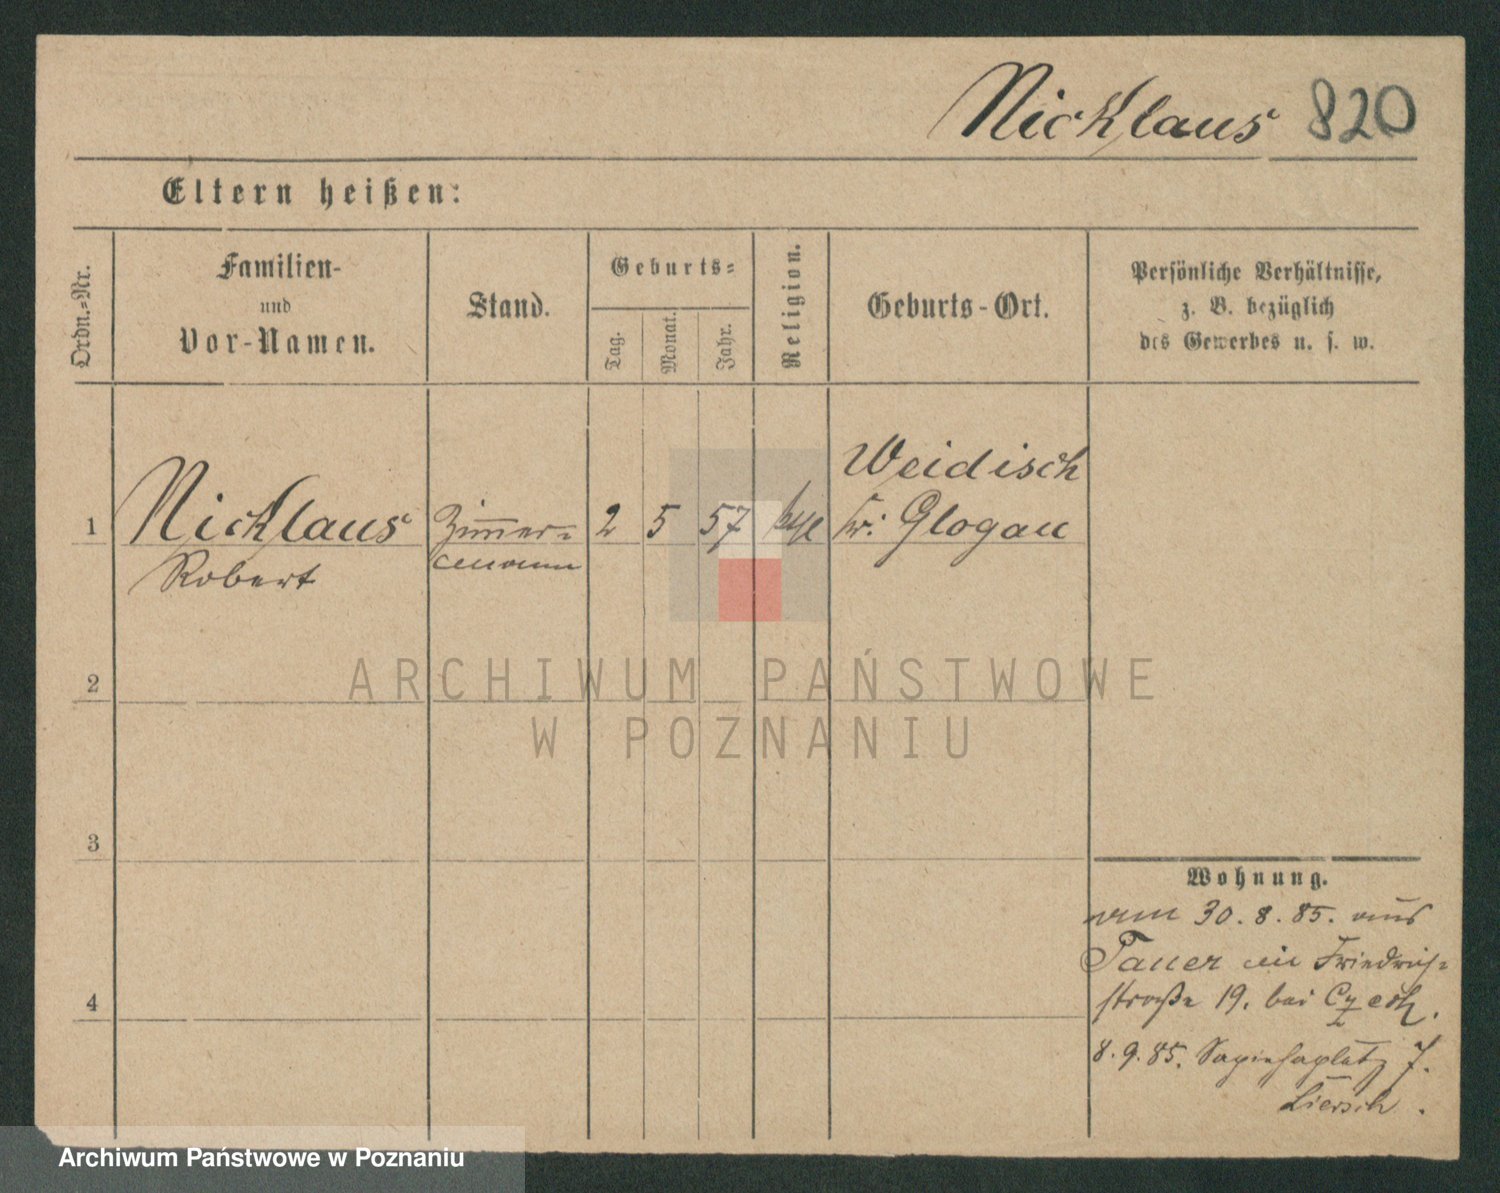 Nicklaus 820
Eltern heißen:
Ordn.-Nr.
Familien-
und
Vor-Namen.
Stand.
Geburts-
Tag.
Monat.
Jahr.
Religion.
Geburts-Ort.
Persönliche Verhältnisse,
z. B. bezüglich
des Gewerbes u. s. w.
1 Nicklaus
Robert
Zimmer-
mann
2 5 57
Weidisch
Kr. Glogau
2
3
4
Wohnung.
am 30. 8. 85. aus
Tauer in Friedrich-
straße 19. bei
8. 9. 85. Sapiehaplatz 7.
Liersch.
ARCHIWUM PAŃSTWOWE
W POZNANIU
Archiwum Państwowe w Poznaniu